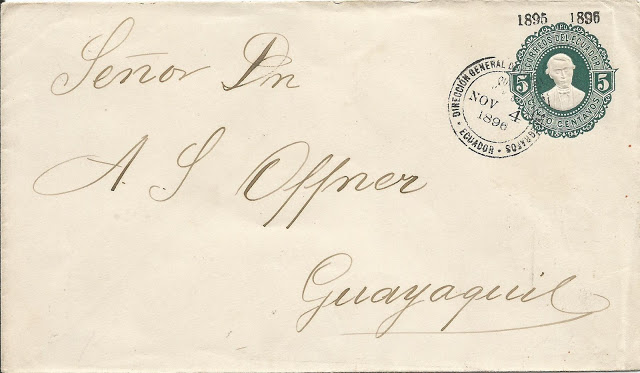 1895 1896
CORREOS DEL ECUADOR
5 5
CINCO CENTAVOS
DIRECCIÓN GENERAL DE
GRAFOS
ECUADOR
NOV 4
1896
Señor Dn
A. S Offner
Guayaquil